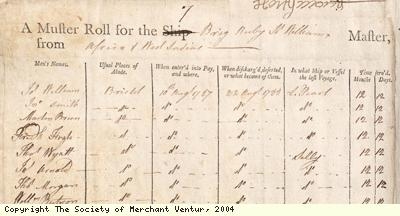 A Muster Roll for the Ship Brig Ruby Jo Williams Master,
from Africa & West Indies
Men's Names. Usual Places of Abode. When enter'd into Pay, and where. When discharg'd, deserted, or what become of them. In what Ship or Vessel the last Voyage. Time serv'd. Months Days.
Jo Williams Bristol 10 Augt 1787 22 Augt 1788 12 12
Jno Smith do do do 12 12
Martin Brown do do do 12 12
do do do 12 12
Thos Wyatt do do do 12 12
Jo Arnold do do do Sally 12 12
Thos Morgan do do do do 12 12
do do do do 12 12
Copyright The Society of Merchant Ventur, 2004